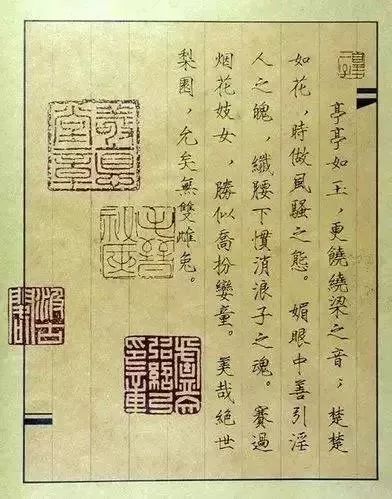 亭亭如玉，更饒繞梁之音；楚楚
如花，時做風騷之態。媚眼中善引淫
人之魄，纖腰下慣消浪子之魂。賽過
烟花妓女，勝似喬扮孌童。美哉絕世
梨園，允矣無雙雌兔。